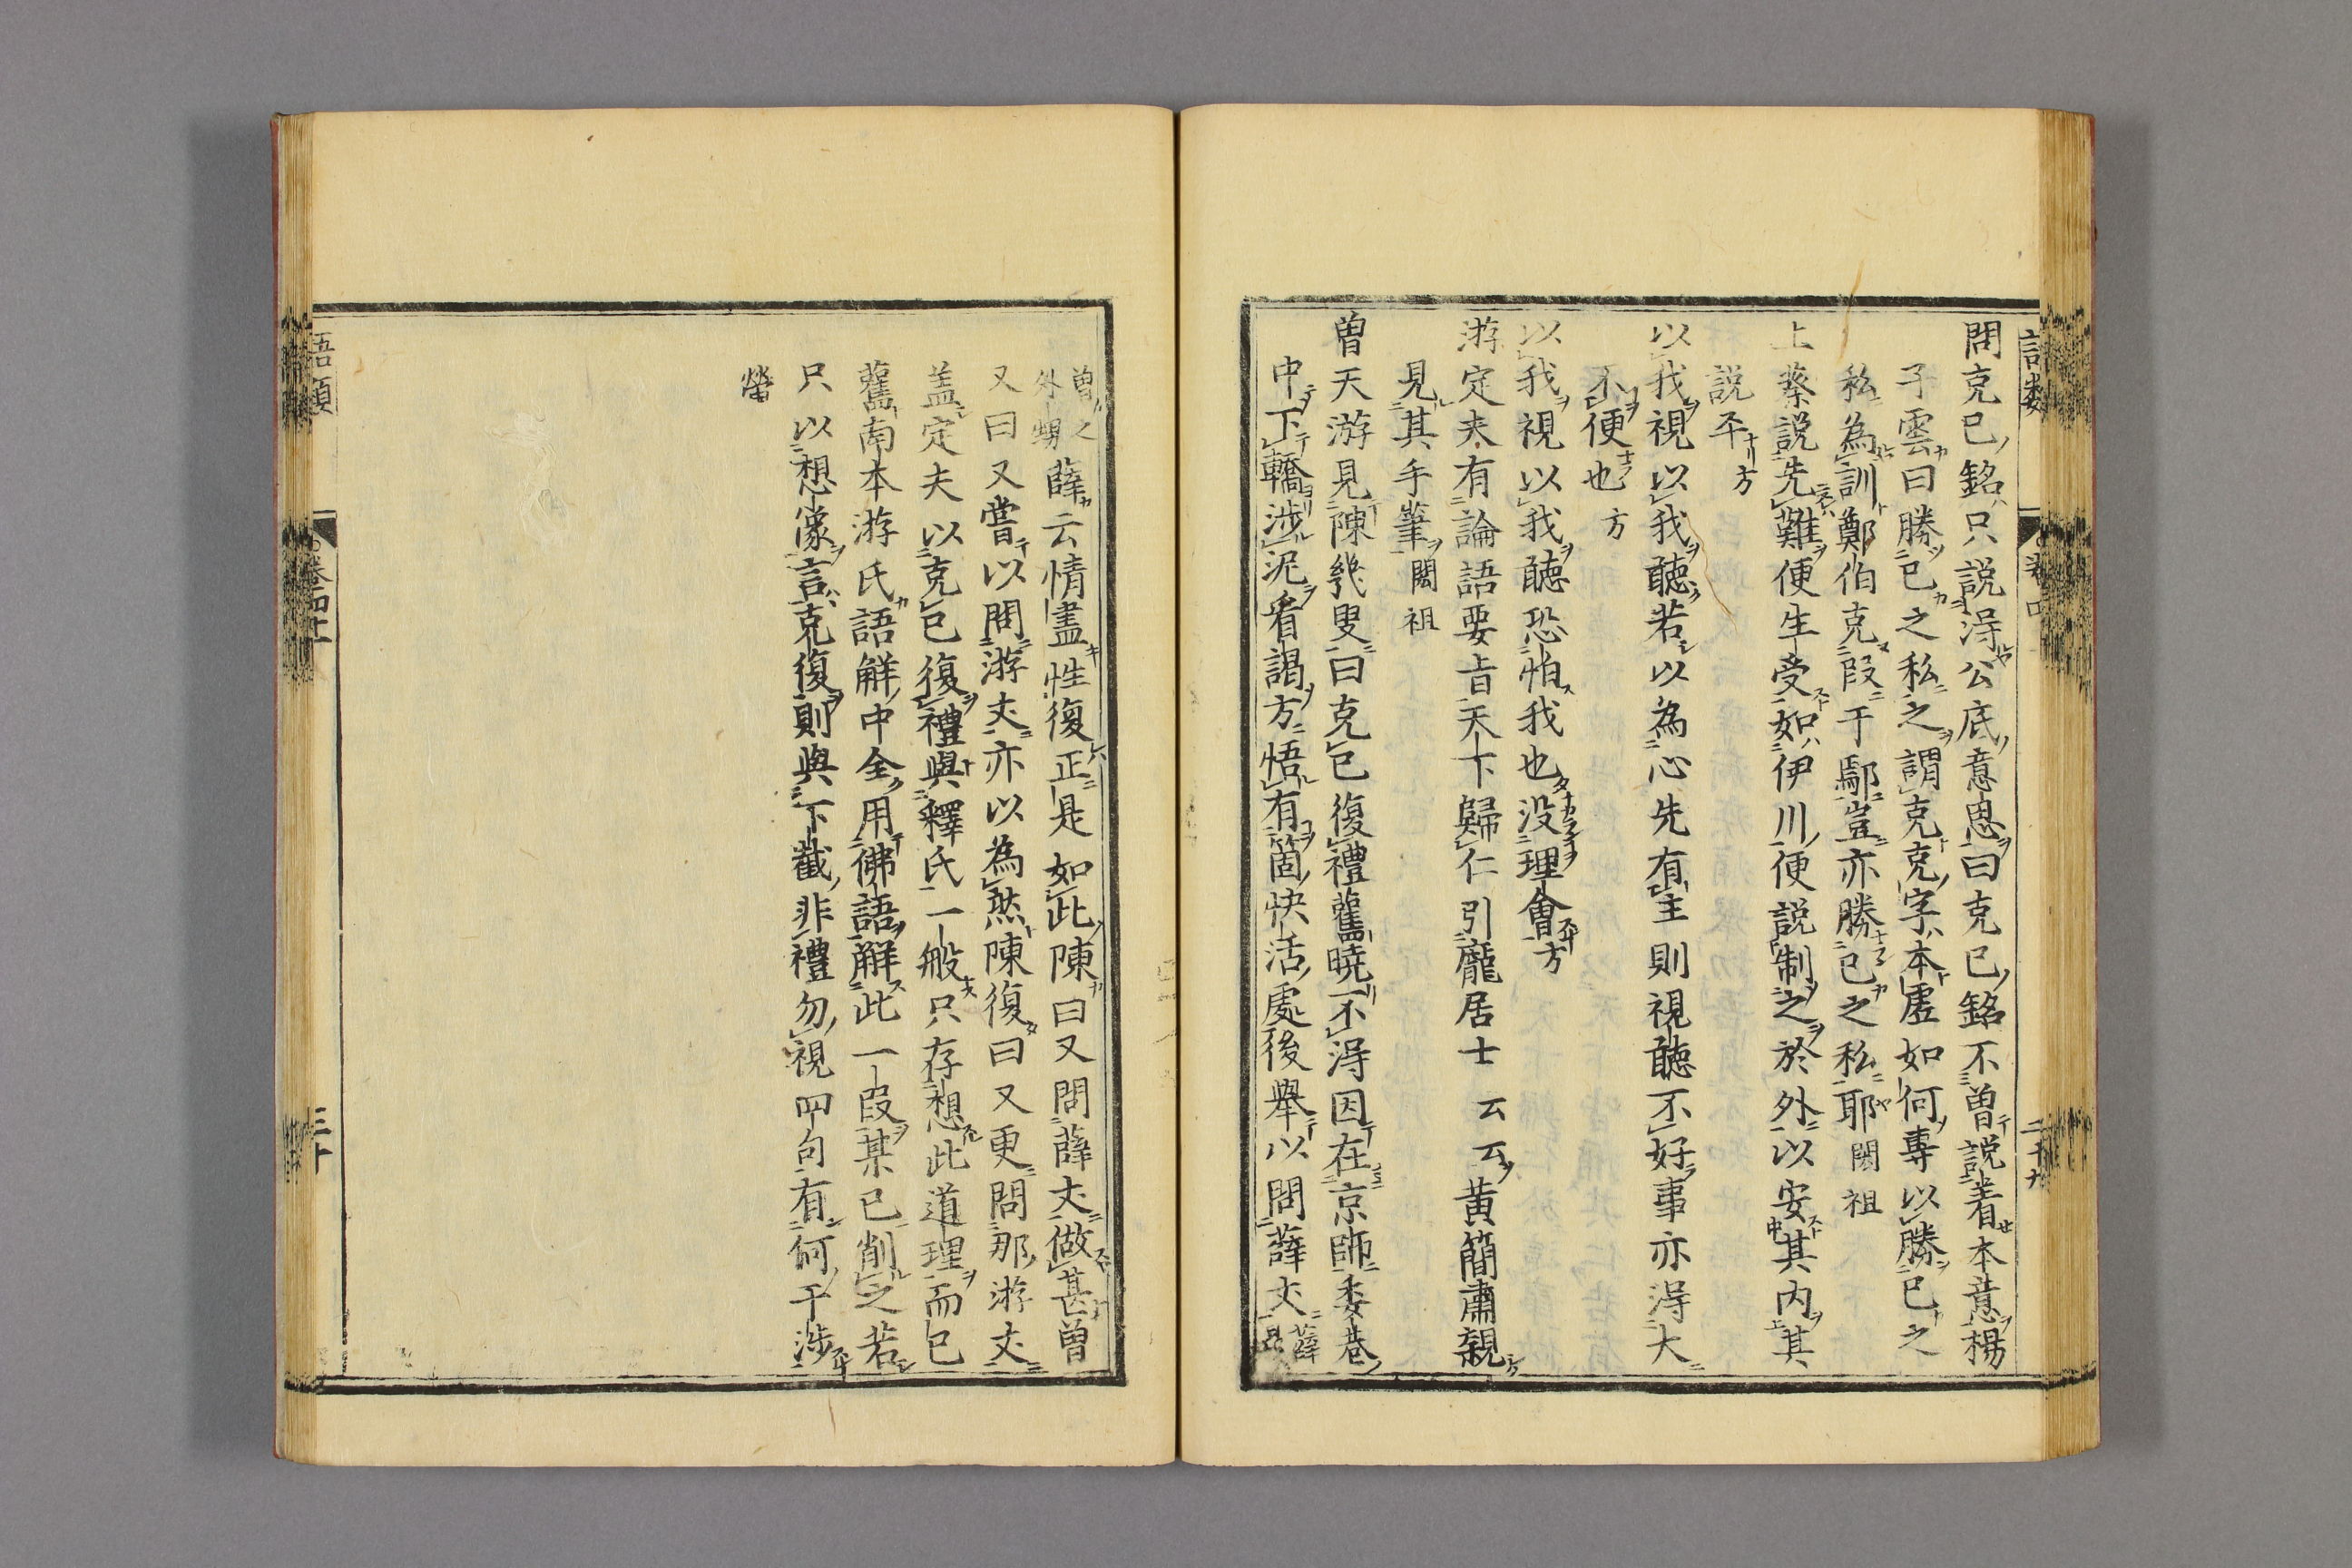 問克己銘只說得公底意思曰克己銘不曽說着本意楊
子雲曰勝己之私之謂克克字本虛如何專以勝己之
私為訓鄭伯克段于鄢豈亦勝己之私耶閎祖
上蔡說先難便生受如伊川便說制之於外以安其内其
說平方
以我視以我聽若以為心先有主則視聽不好事亦得大
不便也方
以我視以我聽恐怕我也没理會方
游定夫有論語要旨天下歸仁引龐居士云云黄簡肅親
見其手筆閎祖
曽天游見陳幾叟曰克己復禮舊曉不得因在京師委巷
中下轎渉泥看謁方悟有箇快活處後舉以問薛丈薛昂
曽之外甥薛云情盡性復正是如此陳曰又問薛丈做甚曽
又曰又嘗以問游丈亦以為然陳復曰又更問那游丈
盖定夫以克己復禮與釋氏一般只存想此道理而已
舊南本游氏語解中全用佛語解此一段某已削之若
只以想像言克復則與下截非禮勿視四句有何干涉
㽦
語類
卷四十一
三十